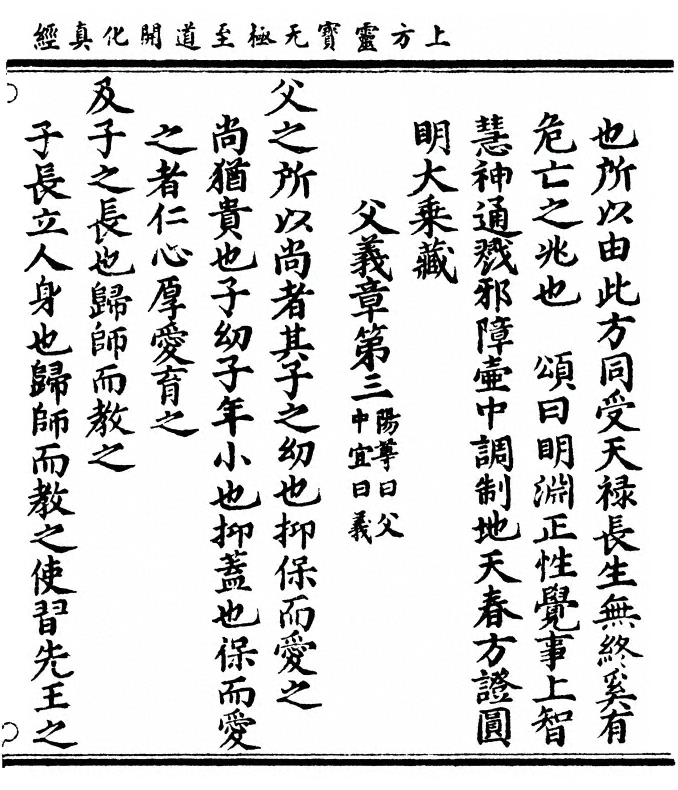 上方靈寶无極至道開化真經
也所以由此方同受天禄長生無終奚有
危亡之兆也　頌曰明淵正性覺事上智
慧神通戮邪障壷中調制地天春方證圓
明大乗藏
父義章第三
陽尊曰父
中宜曰義
父之所以尚者其子之㓜也抑保而愛之
尚猶貴也子㓜子年小也抑蓋也保而愛
之者仁心厚愛育之
及子之長也歸師而教之
子長立人身也歸師而教之使習先王之